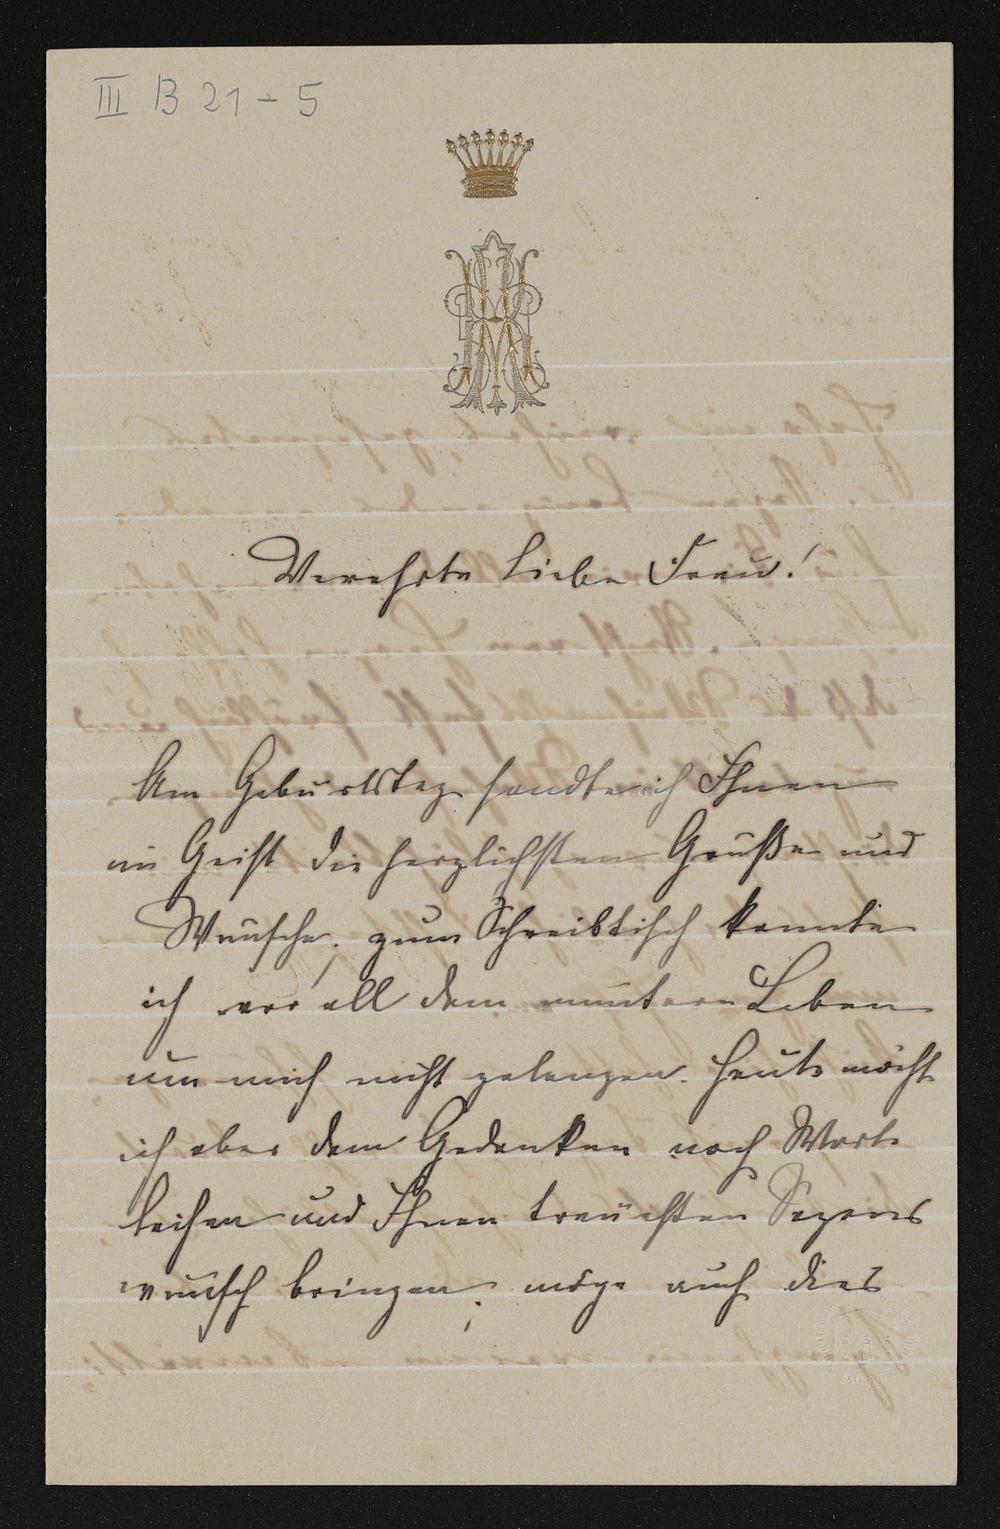 III B 21-5
Verehrte liebe Frau!
Am Geburtstag sandte ich Ihnen
im Geist die herzlichsten Grüße und
Wünsche; zum Schreibtisch konnte
ich vor all dem muntern Leben
um mich nicht gelangen. Heute möcht
ich aber dem Gedanken noch Worte
leihen und Ihnen treuesten Segens
wunsch bringen; möge auch dies